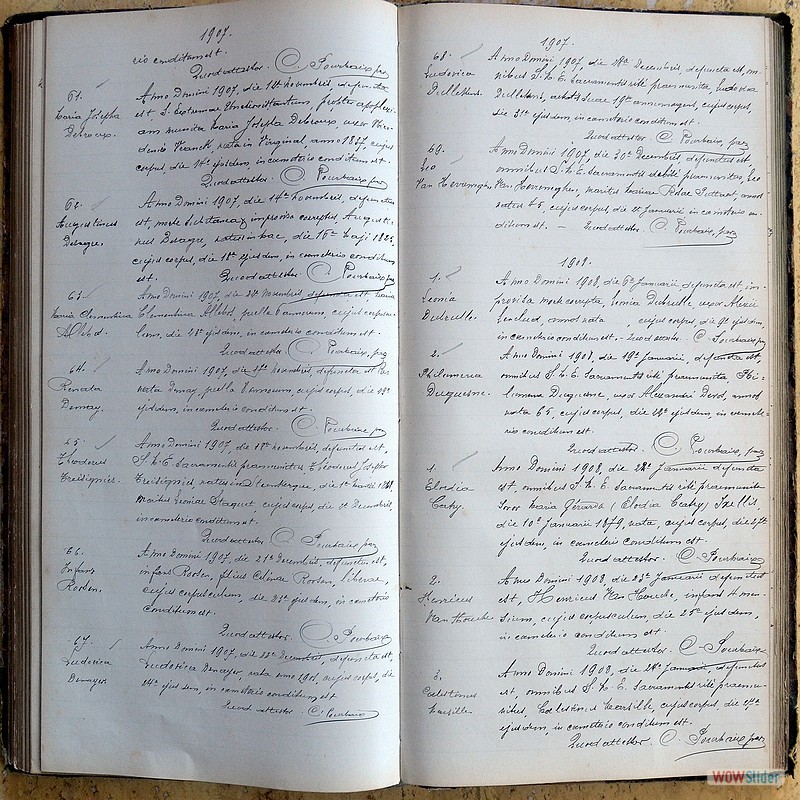 1907.
rio conditum est.
Quod attestor. C. Pourbaix, par
61.
Maria Josepha
Debroux.
Anno Domini 1907, die 12a Novembris, defuncta
est S. Extremae Unctionis tantum, propter apoplexi-
am munita Maria Josepha Debroux, uxor
Franck, nata in Virginal, anno 1837, cujus
corpus, die 14a ejusdem, in cœmeterio conditum est.
Quod attestor. C. Pourbaix, par
62.
Augustinus
Anno Domini 1907, die 14a Novembris, defunctus
est, morte improviso correptus, Augusti-
nus natus in hac, die 15a Maji
cujus corpus, die 18a ejusdem, in cœmeterio conditum
est. Quod attestor C. Pourbaix, par
63.
Maria Clementina
Allebod.
Anno Domini 1907, die Novembris, defuncta est, Maria
Clementina Allebod, puella annorum, cujus corpus-
culum, die 28a ejusdem, in cœmeterio conditum est.
Quod attestor. C. Pourbaix, par
64.
Renata
Demay.
Anno Domini 1907, die Novembris, defuncta est Re-
nata Demay, puella annorum, cujus corpus, die
ejusdem, in cœmeterio conditum est.
Quod attestor. C. Pourbaix, par
65.
Theodorus
Anno Domini 1907, die Novembris, defunctus est,
S. M. E. Sacramentis praemunitus, Theodorus Josephus
natus in Steenkerque, die
Maritus Leoniae Staquet, cujus corpus, die Decembris,
in cœmeterio conditum est.
Quod attestor. C. Pourbaix, par
66.
Infans
Rorsen.
Anno Domini 1907, die 21a Decembris, defunctus est,
infans Rorsen, filius Celinae Rorsen, liberae,
cujus corpusculum, die ejusdem, in cœmeterio
conditum est.
Quod attestor. C. Pourbaix
67.
Ludovica
Denayer.
Anno Domini 1907, die 22a Decembris, defuncta est,
Ludovica Denayer, nata anno cujus corpus, die
24a ejusdem, in cœmeterio conditum est
Quod attestor. C. Pourbaix
1907.
68.
Ludovica
Anno Domini 1907, die Decembris, defuncta est, om-
nibus S. M. E. Sacramentis rite praemunita, Ludovica
aetatis suae 19a annorum, cujus corpus,
die 31a ejusdem, in cœmeterio conditum est.
Quod attestor C. Pourbaix, par
69.
Leo
Van Keveneghen
Anno Domini 1907, die 30a Decembris, defunctus est
omnibus S. M. E. Sacramentis debite praemunitus, Leo
Van Keveneghen, maritus Mariae Rosae annos
natus 65, cujus corpus, die Januarii in cœmeterio con-
ditum est. — Quod attestor. — C. Pourbaix, par
1908.
1.
Leonia
Dutrulle.
Anno Domini 1908, die 6a Januarii, defuncta est, im-
provisa morte correpta, Leonia Dutrulle uxor Alexii
annos nata , cujus corpus, die 9a ejusdem,
in cœmeterio conditum est. — Quod attestor. C. Pourbaix par
2.
Philomena
Duquesne.
Anno Domini 1908, die 19a Januarii, defuncta est,
omnibus S. M. E. Sacramentis rite praemunita, Phi-
lomena Duquesne, uxor Alexandri annos
nata 65, cujus corpus, die ejusdem, in cœmete-
rio conditum est.
Quod attestor. C. Pourbaix, par
1.
Elodia
Catry.
Anno Domini 1908, die 24a Januarii defuncta
est, omnibus S. M. E. Sacramentis rite praemunita
Soror Maria Gerarda (Elodia Catry) Ixellis,
die 10a Januarii 1879, nata, cujus corpus, die 27a
ejusdem, in cœmeterio conditum est.
Quod attestor. C. Pourbaix
2.
Henricus
Van Houcke
Anno Domini 1908, die 23a Januarii defunctus
est, Henricus Van Houcke, infans 4 men-
sium, cujus corpusculum, die 25a ejusdem,
in cœmeterio conditum est.
Quod attestor. C. Pourbaix
3.
Celestinus
Anno Domini 1908, die 24a Januarii, defunctus
est, omnibus S. M. E. Sacramentis rite praemu-
nitus, Celestinus cujus corpus, die 27a
ejusdem, in cœmeterio conditum est.
Quod attestor. C. Pourbaix, par
WOWSlider